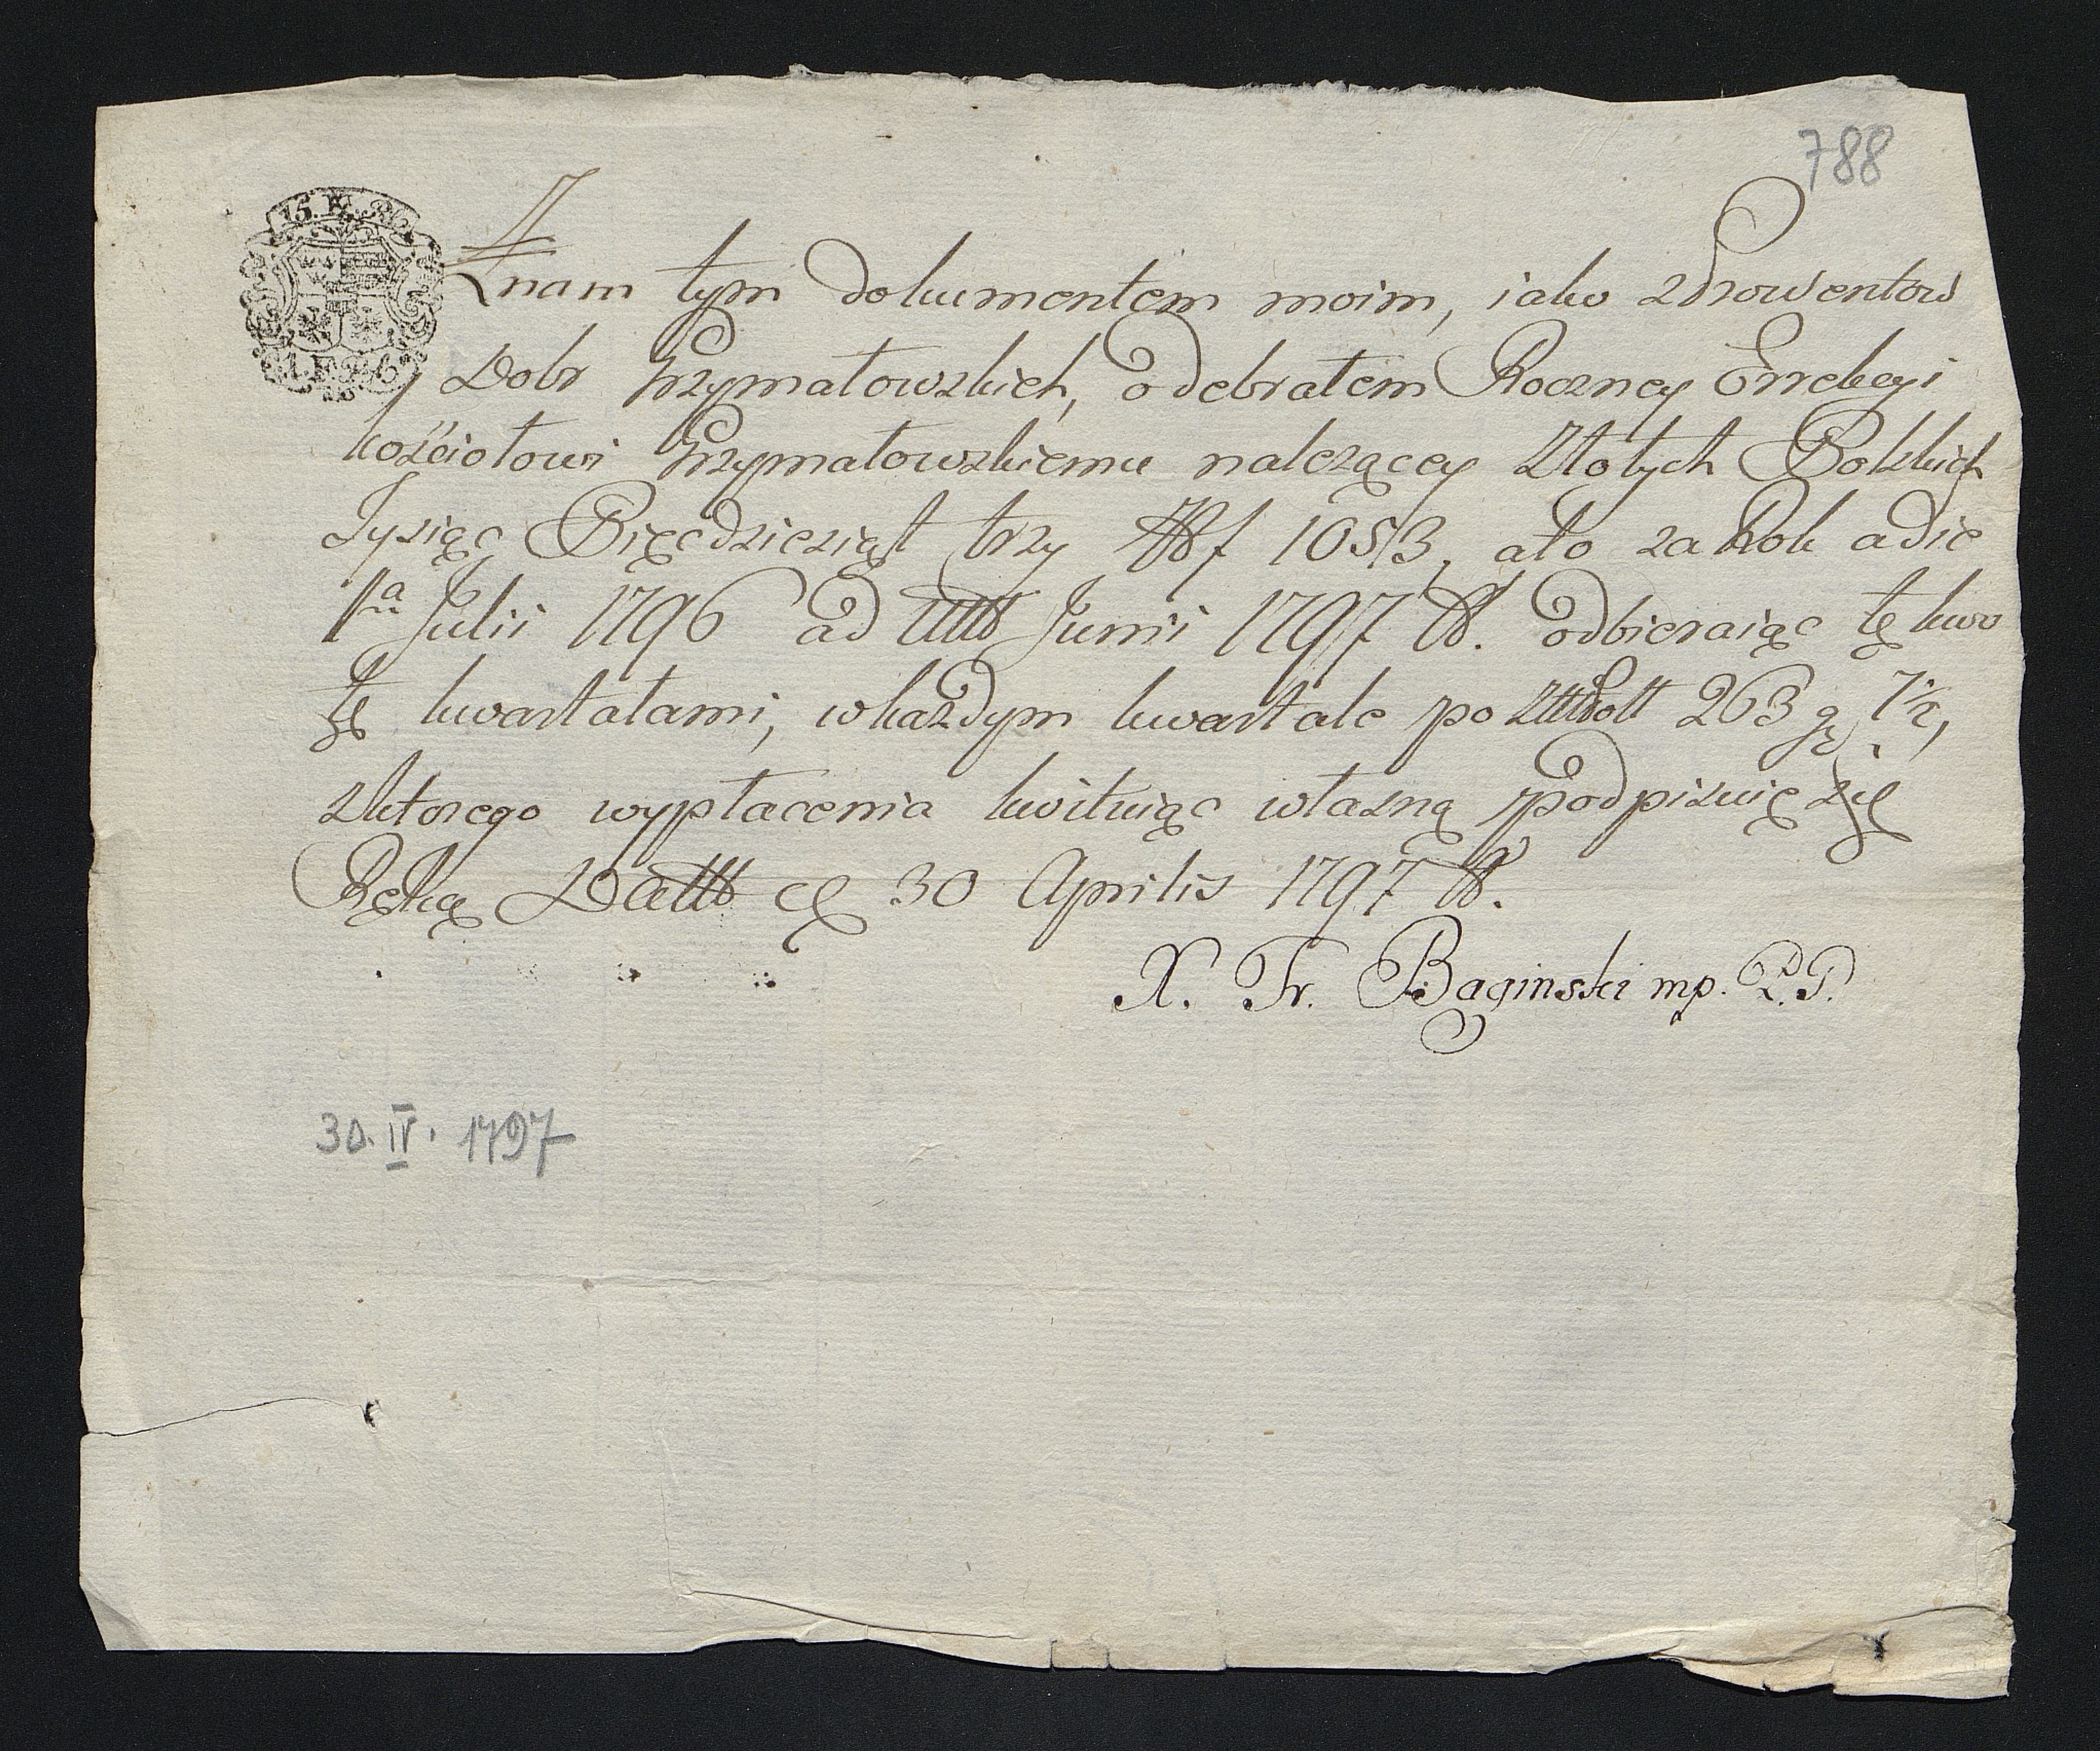 788
15. K. 3
1796
Znam tym dokumentem moim, iako zProwentow
y Dobr Grzymałowskich, odebrałem Roczney Errekcyi
kościołowi Grzymałowskiemu należącey Złotych Polskich
Tysiąc Pięcdziesiąt trzy f 1053, a to za Rok a die
1ma Julii 1796 ad ultt Junii 1797 odbieraiąc tę kwo
tę kwartałami, w każdym kwartale po 263 gr 7½,
z ktorego wypłacenia kwituiąc własną podpisuię się
Ręką Datt 30 Aprilis 1797
X. Fr. Baginski mp. P.G.
30. IV. 1797